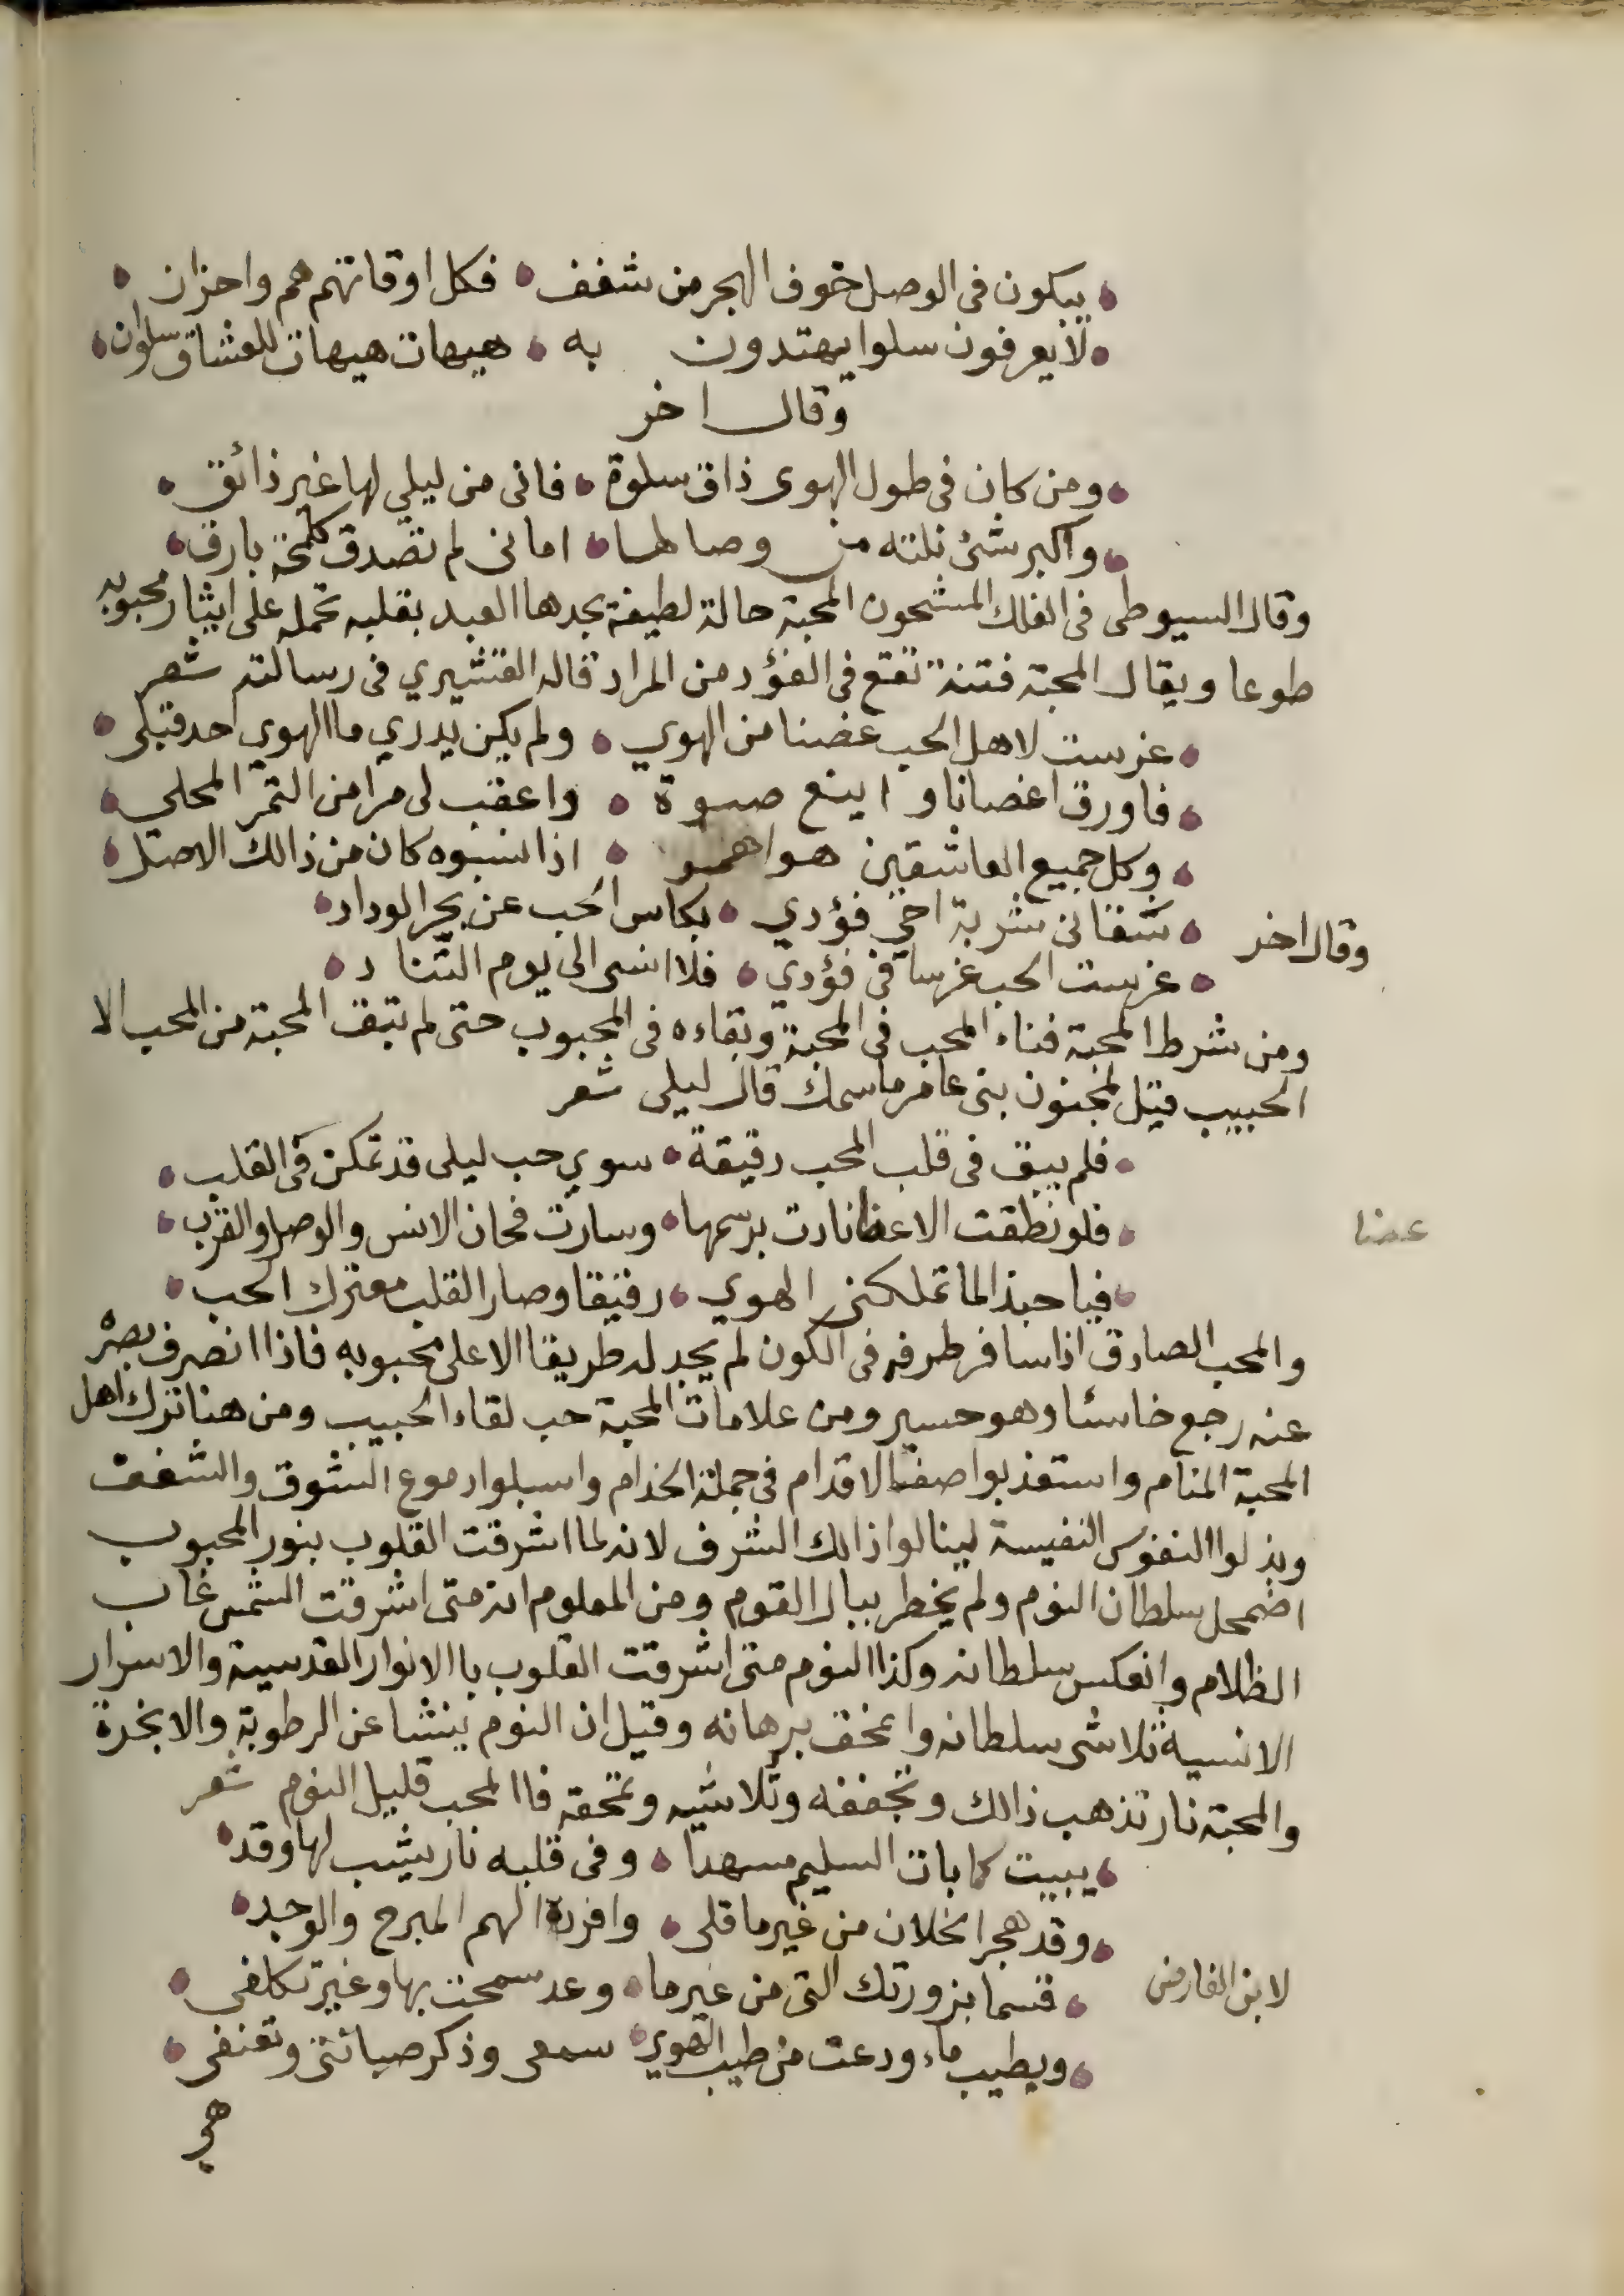 يبكون فى الوصل خوف الهجر من شغف • فكل اوقاتهم هم واحزان
لا يعرفون سلوا يهتدون به • هيهات هيهات للعشاق سلوان
وقال اخر
ومن كان فى طول الهوى ذاق سلوة • فانى من ليلي لها غير ذائق
واكبر شئ نلته من وصالها • امانى لم تصدق كلمحة بارق
وقال السيوطى فى الفلك المشحون المحبة حالة لطيفة يجدها العبد بقلبه تحمله على ايثار محبوبه
طوعا ويقال المحبة فتنة تقع فى الفؤد من المراد قاله القشيري فى رسالته شعر
غرست لاهل الحب غضنا من الهوي • ولم يكن يدري ما الهوي احد قبلى
فاورق اغصانا و اينع صبوة • واعقب لى مرا من الثمر المحلى
وكل جميع العاشقين هواهمو • اذا نسبوه كان من ذالك الاصل
وقال اخر • سقانى شربة احي فؤدي • بكاس الحب عن بحر الوداد
غرست الحب غرسا فى فؤدي • فلا انسى الى يوم التناد
ومن شرط المحبة فناء المحب فى المحبة وبقاءه فى المحبوب حتى لم تبق المحبة من المحب الا
الحبيب قيل لمجنون بنى عامر ماسمك قال ليلى شعر
فلم يبق فى قلب المحب دقيقة • سوي حب ليلى قد تمكن فى القلب
فلو نطقت الاعظا نادت برسمها • وسارت فحان الانس والوصل والقرب
عضا
فيا حبذا لما تملكنى الهوي • رفيقا وصار القلب معترك الحب
والمحب الصادق اذا سافر طرفه فى الكون لم يجد له طريقا الا على محبوبه فاذا انصرف بصره
عنه رجع خاسئا وهو حسير ومن علامات المحبة حب لقاء الحبيب ومن هنا ترك اهل
المحبة المنام واستعذبوا صف الاقدام فى جملة الخدام واسبلوا دموع الشوق والشغف
وبذلوا النفوس النفيسة لينالوا ذالك الشرف لانه لما اشرقت القلوب بنور المحبوب
اضمحل سلطان النوم ولم يخطر ببال القوم ومن المعلوم انه متى اشرقت الشمس غاب
الظلام وانعكس سلطانه وكذا النوم متى اشرقت القلوب باالانوار القدسية والاسرار
الانسية تلاشى سلطانه وامحق برهانه وقيل ان النوم ينشا عن الرطوبة والابخرة
والمحبة نار تذهب ذالك وتجففه وتلاشيه وتمحقه فاالمحب قليل النوم شعر
يبيت كما بات السليم مسهدا • وفى قلبه نار يشب لها وقد
وقد هجر الخلان من غير ما قلى • وافرده الهم المبرح والوجد
لابن الفارض • قسما بزورتك التى من غير ما • وعد سمحت بها وغير تكلفى
وبطيب ماء ودعت من طيب الهوي • سمعى وذكر صبائتى وتعنفى